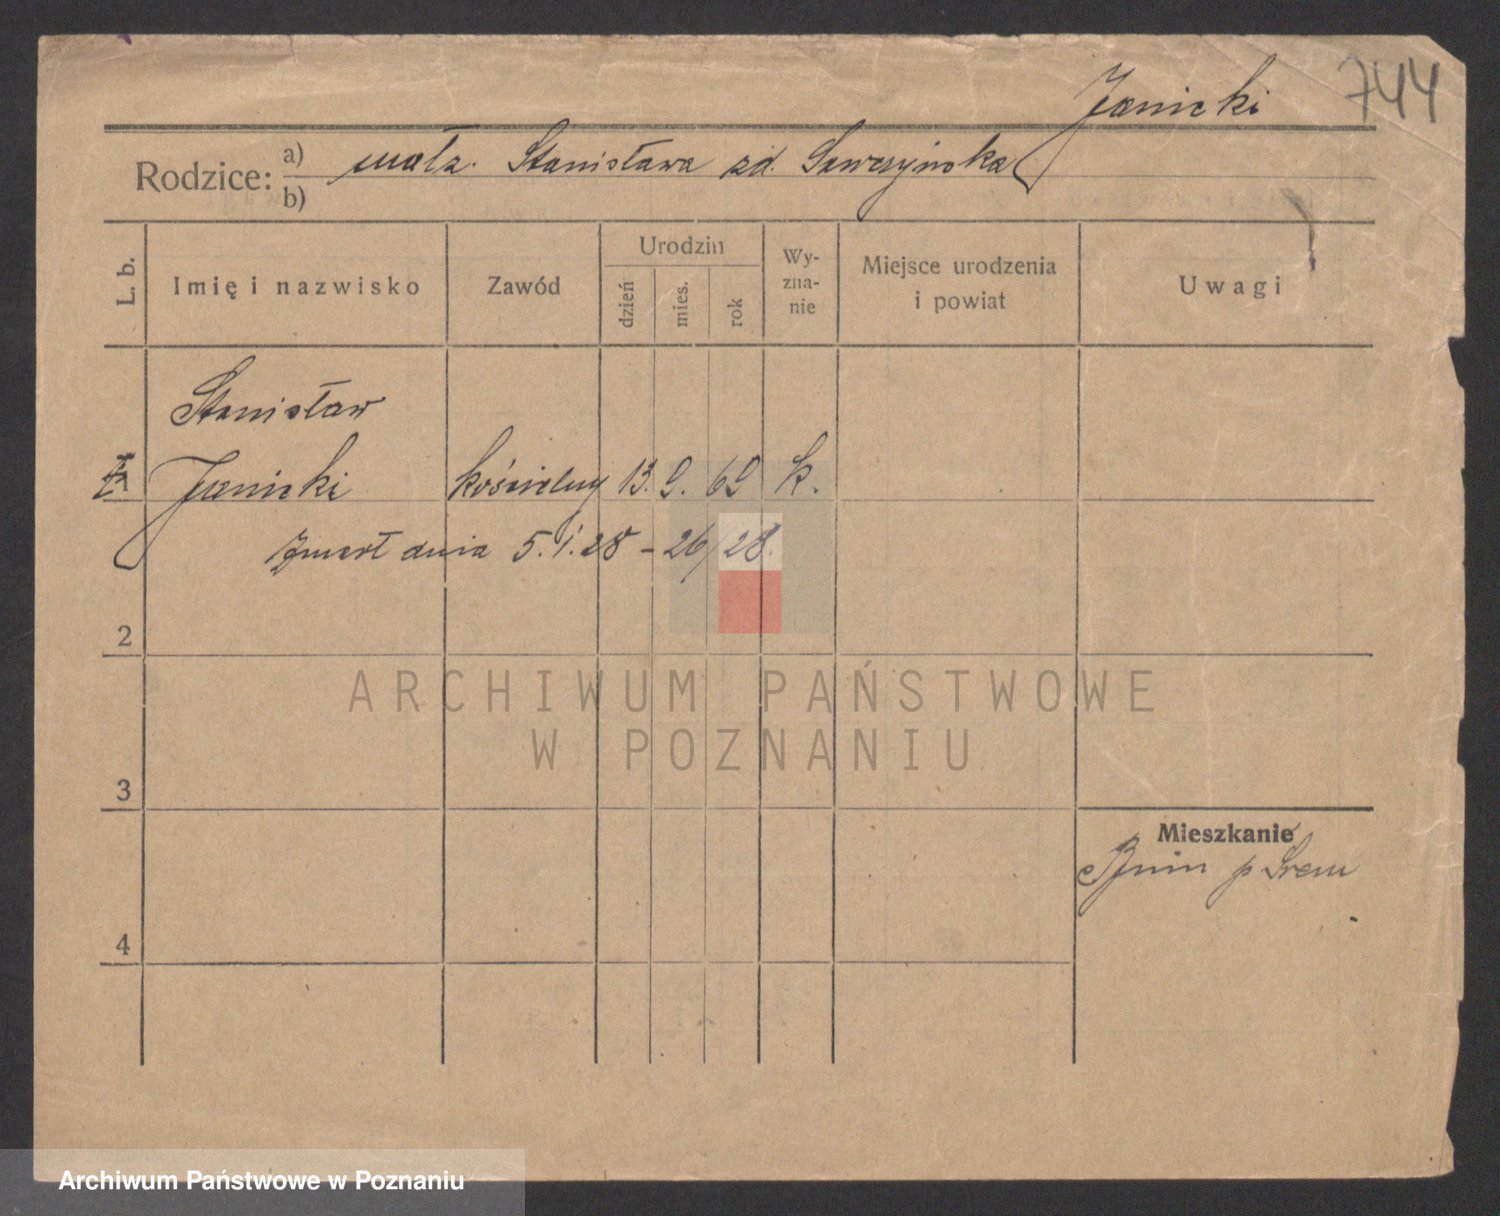 Janicki 744
Rodzice: a) małz. Stanisława zd.
b)
L. b.
Imię i nazwisko
Zawód
Urodzin
dzień
mies.
rok
Wy-
zna-
nie
Miejsce urodzenia
i powiat
Uwagi
Stanisław
Janicki kościelny 13. 9. 69 k.
Zmarł dnia 5.1.28 - 26/28.
2
ARCHIWUM PAŃSTWOWE
W POZNANIU
3
Mieszkanie
Bnin p. Śrem
4
Archiwum Państwowe w Poznaniu